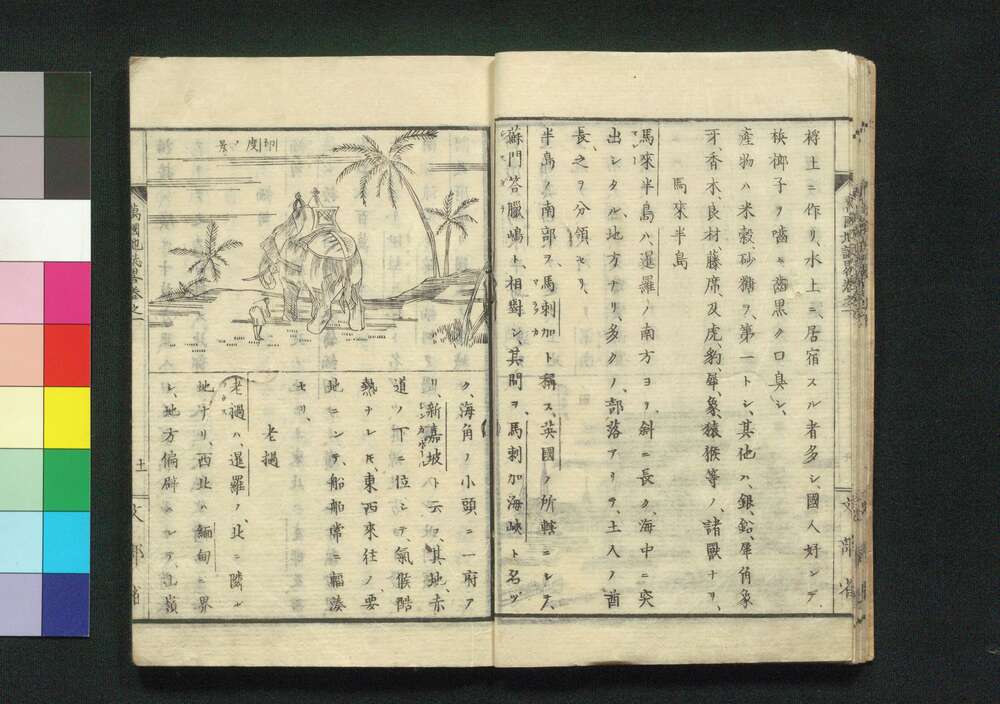 将土ニ作リ、水上ニ居宿スル者多シ、國人好ンデ
檳榔子ヲ嚙ミ齒黒ク口臭シ、
產物ハ米穀、砂糖ヲ、第一トシ、其他ハ、銀、鉛、犀角、象
牙、香木、良材、藤席、及虎、豹、犀、象、猿猴等ノ、諸獸ナリ、
馬來半島
馬來半島ハ、暹羅ノ南方ヨリ、斜ニ長ク、海中ニ突
出シタル、地方ナリ、多クノ部落アリテ、土人ノ酋
長、之ヲ分領セリ、
半島ノ南部ヲ、馬剌加ト稱ス、英國ノ所轄ニシテ、
蘇門答臘嶋ト、相對シ、其間ヲ、馬剌加海峽ト名ヅ
文部省
印度ノ景
ク、海角ノ小頭ニ一府ア
リ、新嘉坡ト云フ、其地、赤
道ノ下ニ位シテ、氣候酷
熱ナレ𪜈、東西來往ノ要
地ニシテ、船舶常ニ輻湊
セリ、
老撾
老撾ハ、暹羅ノ、北ニ隣ル
地ナリ、西北ハ緬甸ニ界
シ、地方偏僻ニシテ、山嶺
萬國地誌畧卷之一
文部省